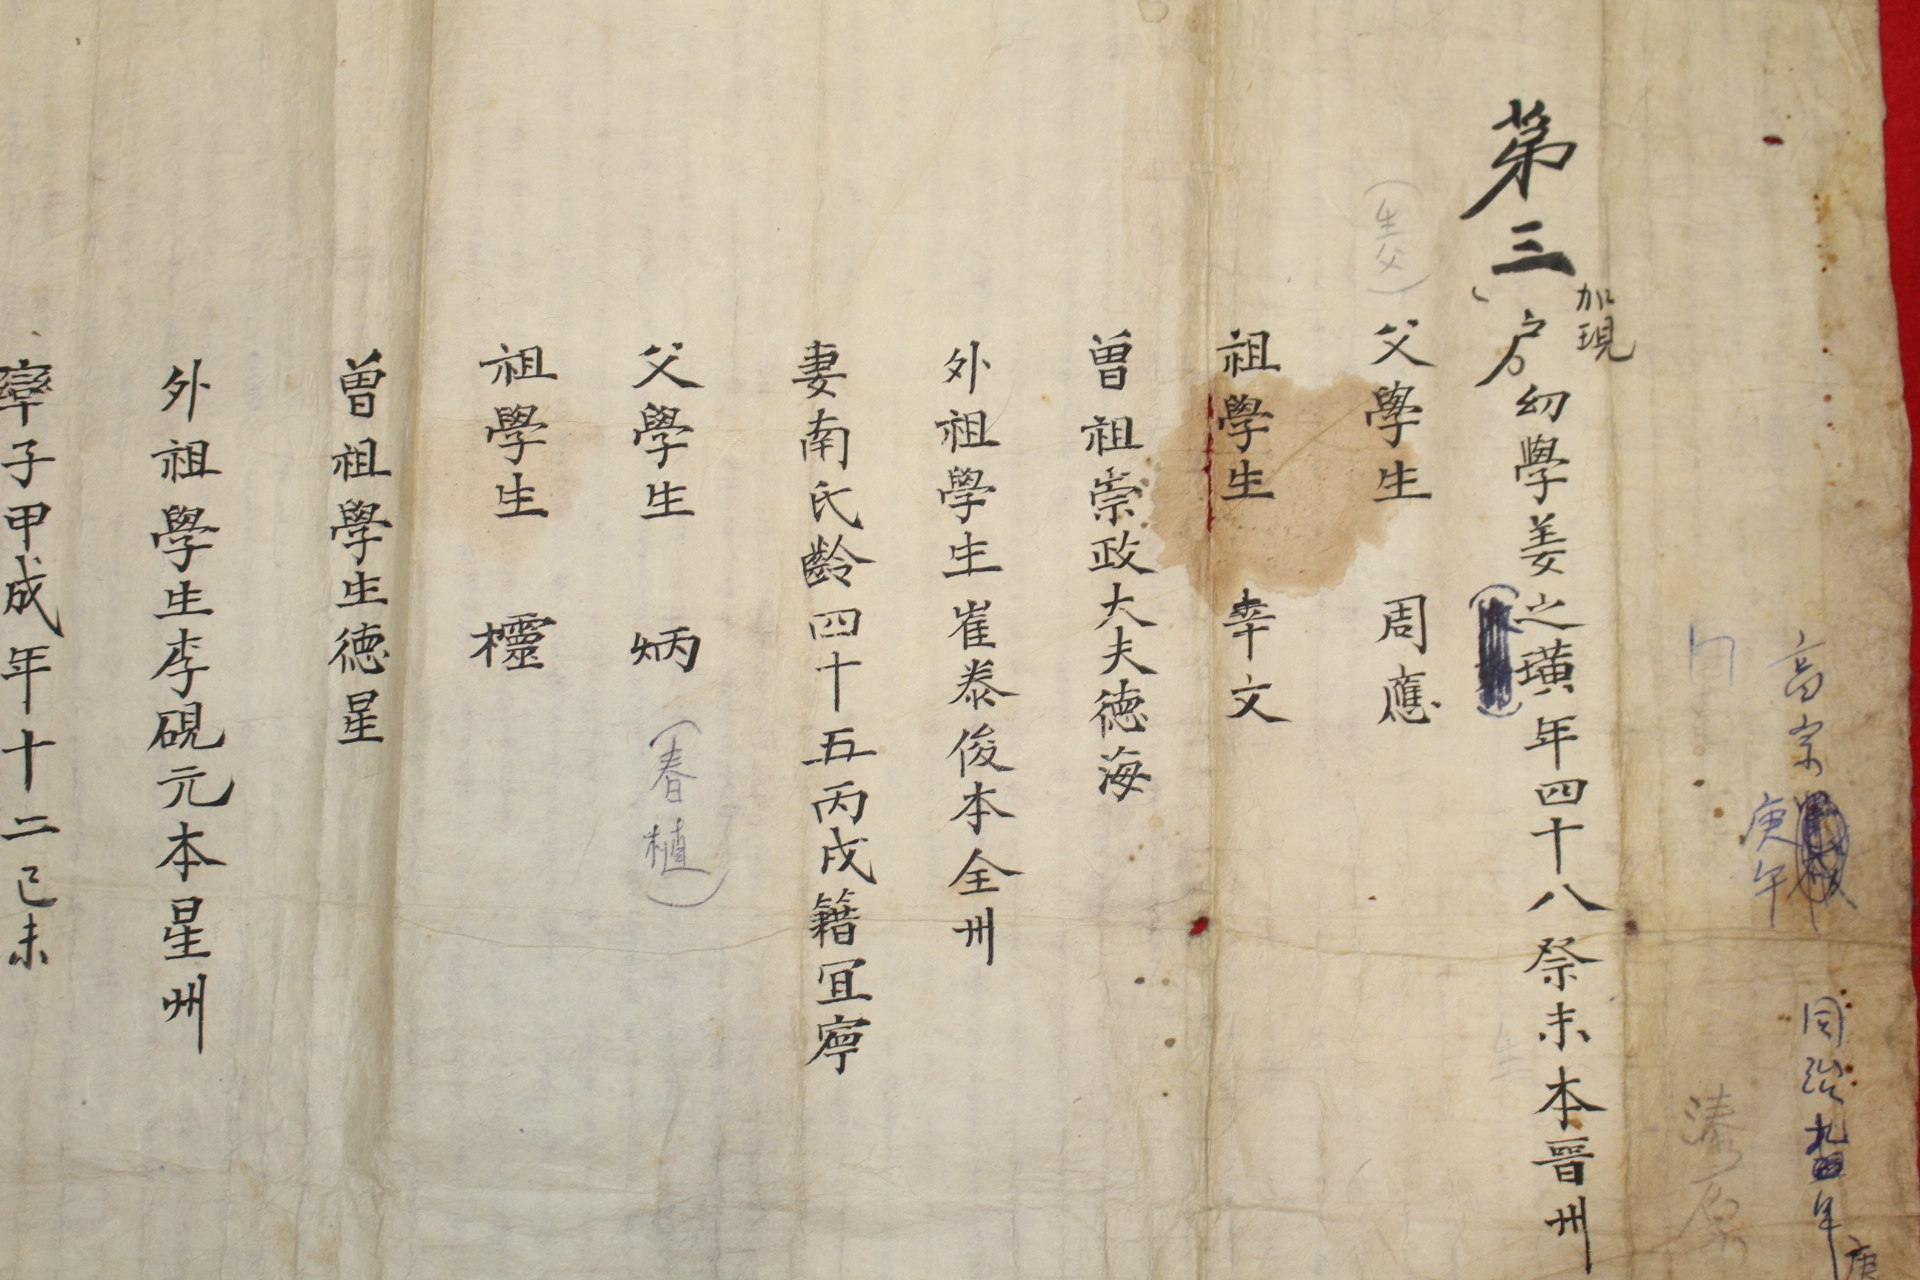 高宗庚午
同治九年庚
加現
第三戶幼學姜之璜年四十八癸未本晉州
(生父)父學生 周應
祖學生 幸文
曾祖崇政大夫德海
外祖學生崔泰俊本全州
妻南氏齡四十五丙戌籍宜寧
父學生 炳(春植)
祖學生 欞
曾祖學生德星
外祖學生李硯元本星州
率子甲成年十二己未